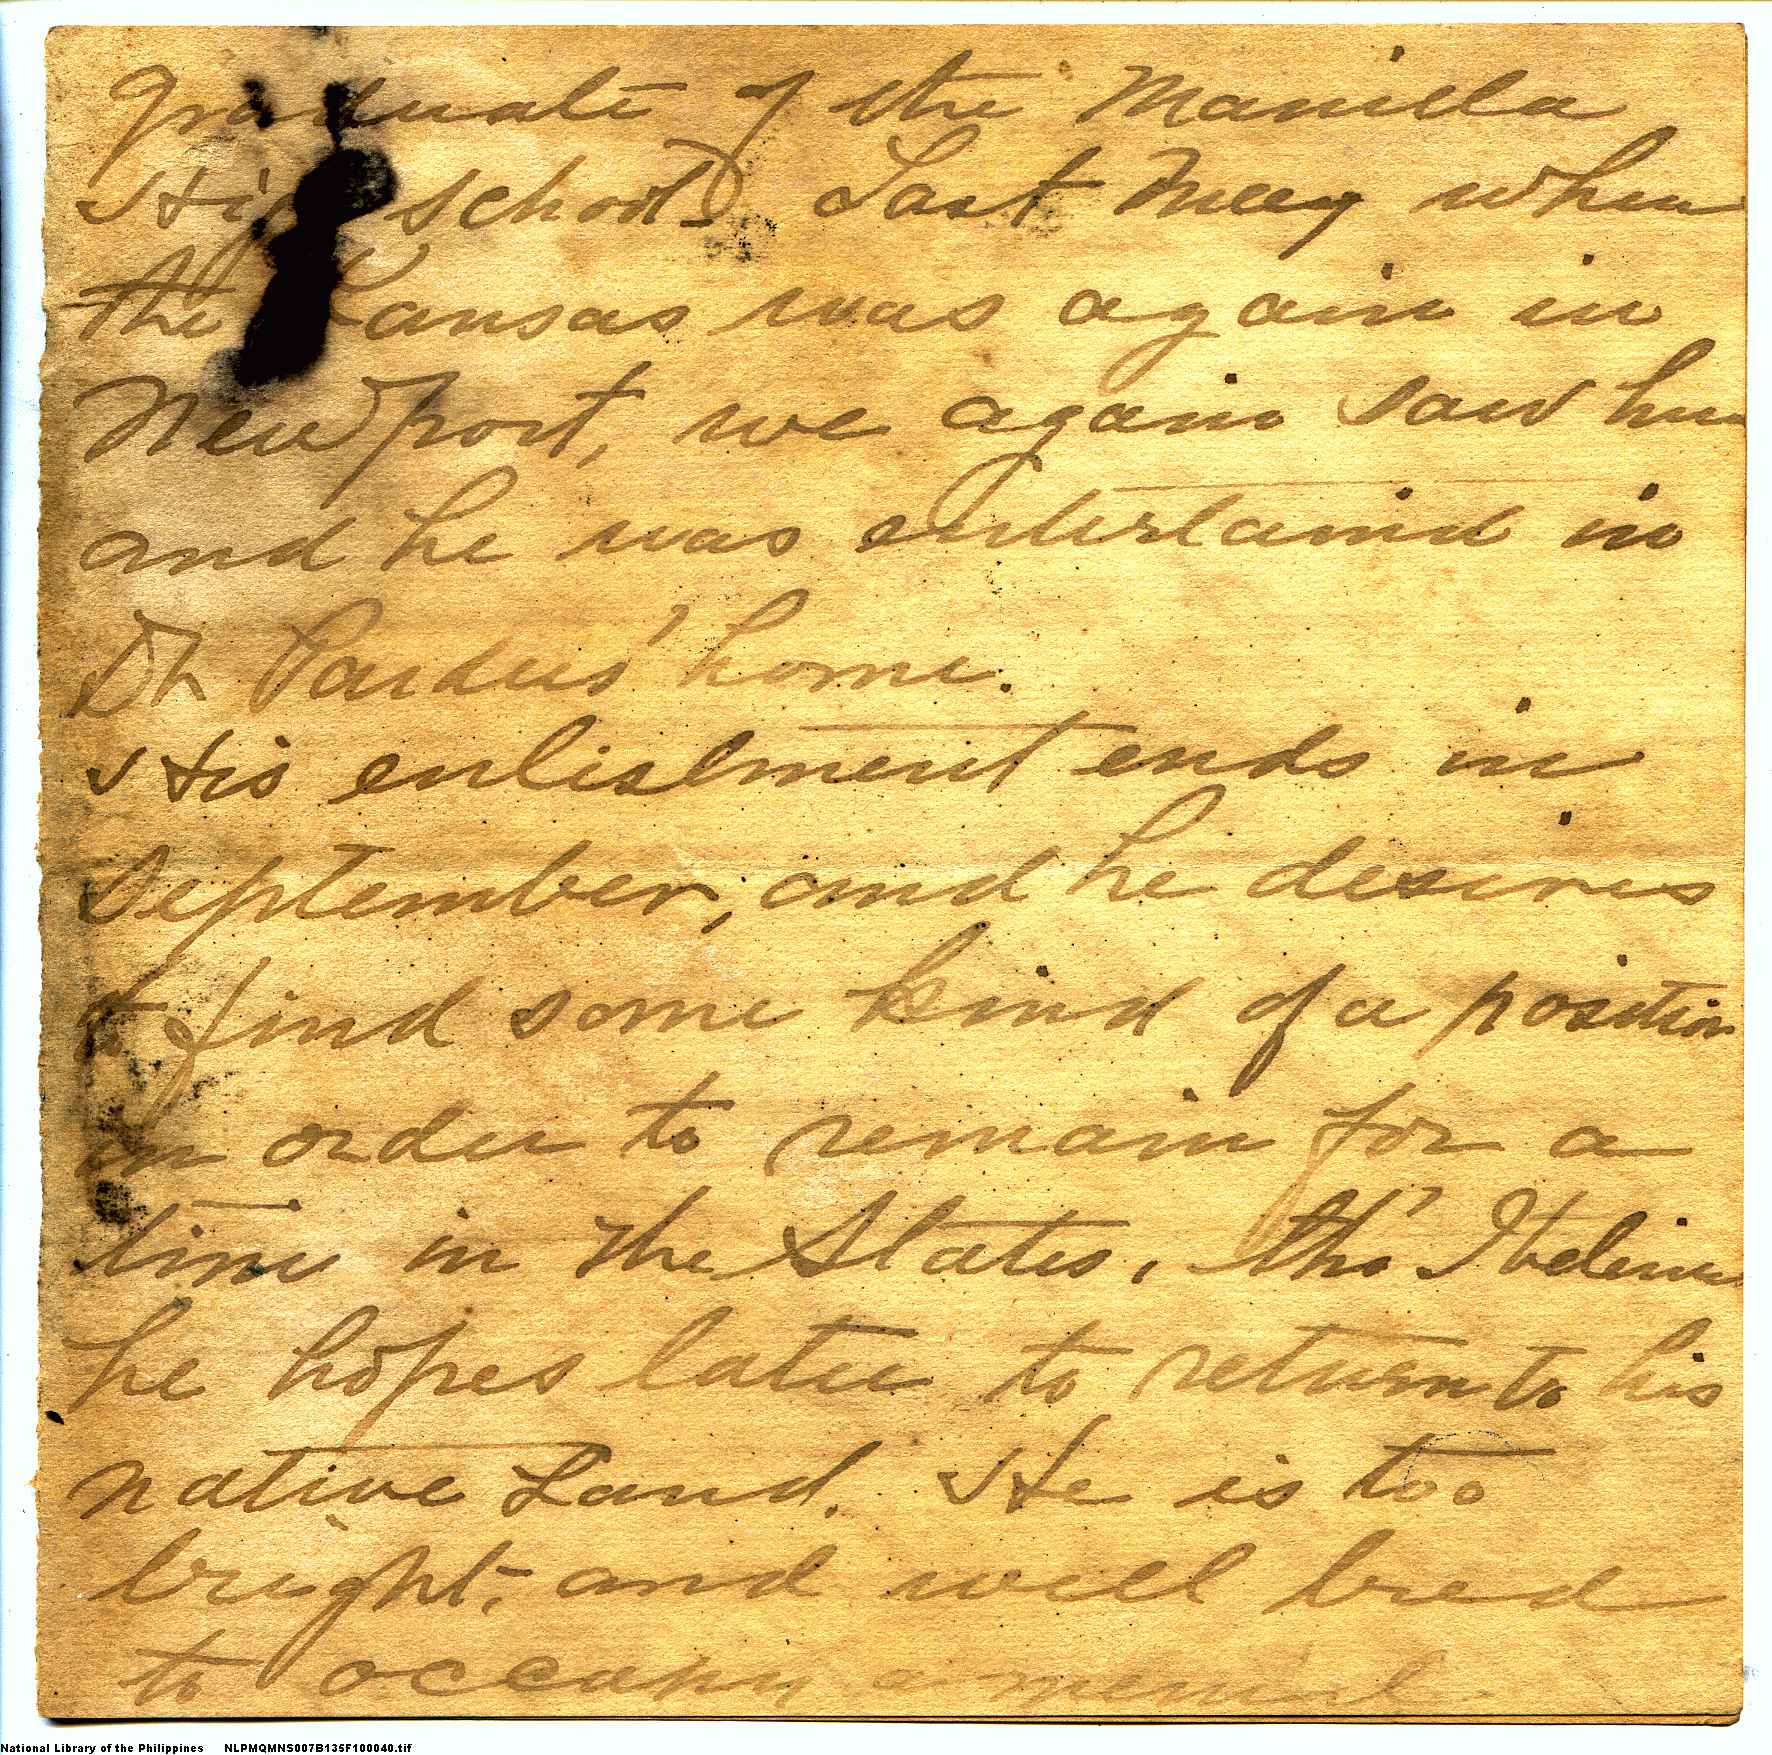 graduate of the Manilla
High school.) Last May when
the Kansas was again in
Newport, we again saw him
and he was entertained in
Dr Pardus' home.
His enlistment ends in
September, and he desires
to find some kind of a position
in order to remain for a
time in the States, tho' I believe
he hopes later to return to his
native Land. He is too
bright, and well bred
to occupy a menial
National Library of the Philippines NLPMQMNS007B135F100040.tif